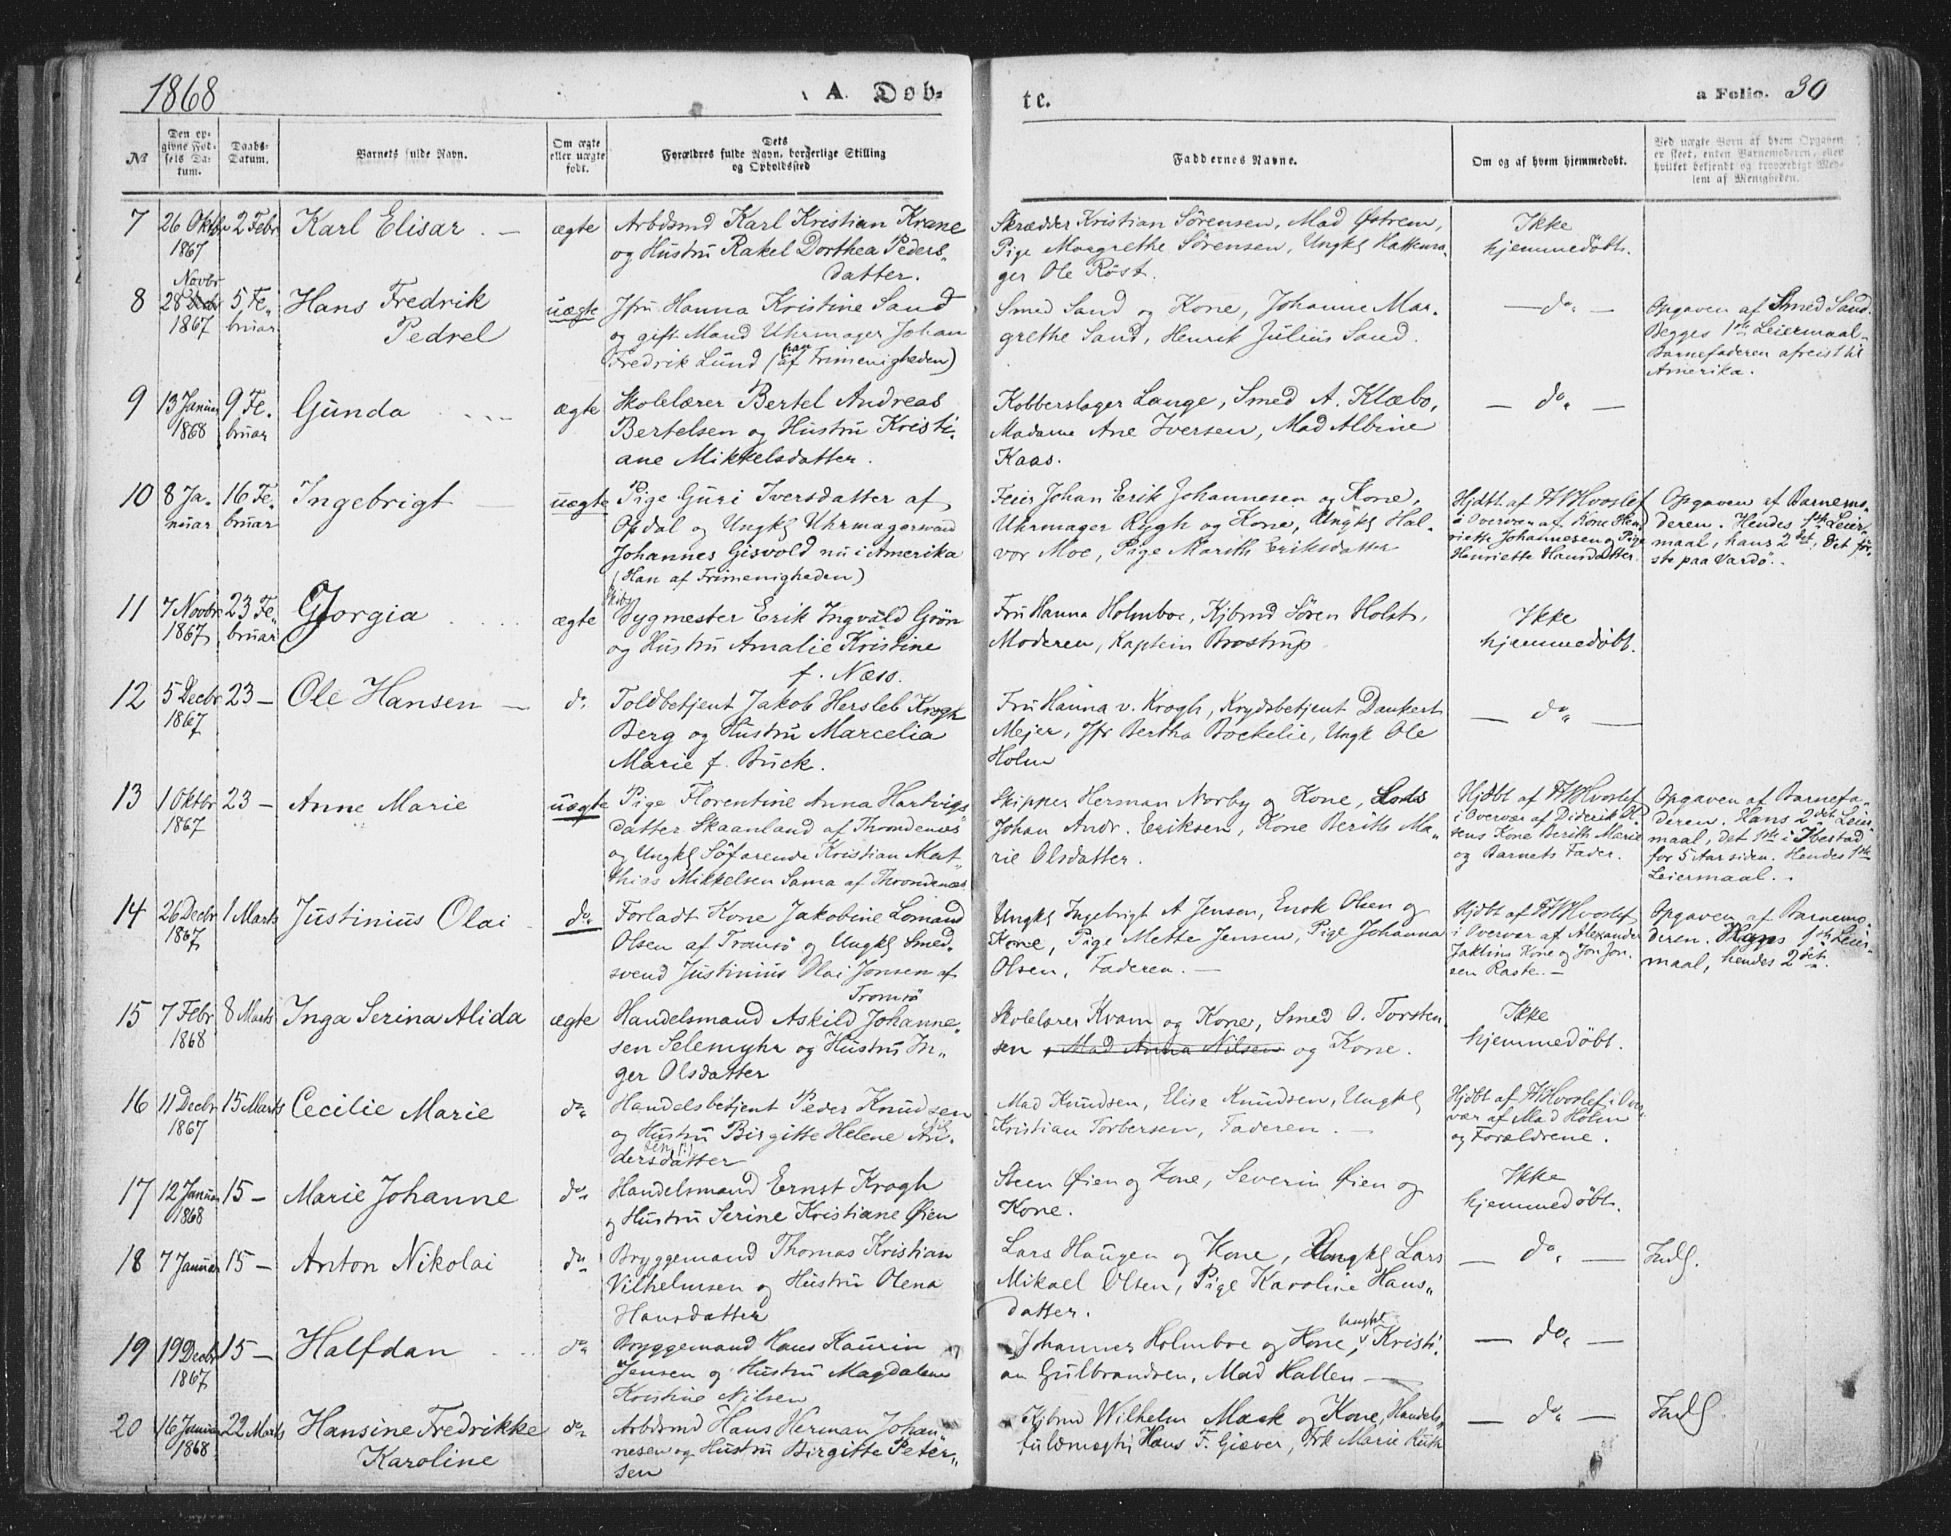 1868
A. Döb-
te.
a Folio. 30
№
Den opgivne Fødsels Datum.
Daabs-Datum.
Barnets fulde Navn.
Om ægte eller uægte født.
Dets Forældres fulde Navn, borgerlige Stilling og Opholdssted
Faddernes Navne.
Om og af hvem hjemmedøbt.
Ved uægte Børn af hvem Opgaven er skeet, enten Barnemoderen, eller hvilket bekjendt og troværdigt Medlem af Menigheden.
7 26 Oktbr 1867 2 Febr Karl Elisar. — ægte
Arbdsmd Karl Kristian Krane
og Hustru Rakel Dorthea Peders-
datter.
Skrædder Kristian Sørensen, Mad Østrem,
Pige Margrethe Sørensen, Ungkl Hattema-
ger Ole Röst.
Ikke
hjemmedöbt.
8 28 Novbr 1867 5 Fe-
bruar Hans Fredrik
Pedrel uægte
Jfru Hanna Kristine Sand
og gift Mand Uhrmager Johan
Fredrik Lund (han af Frimenigheden)
Smed Sand og Kone, Johanne Mar-
grethe Sand, Henrik Julius Sand.
— do —
Opgaven af Smed Sand.
Begges 1ste Leiermaal.
Barnefaderen afreist til
Amerika.
9 13 Januar 1868 9 Fe-
bruar Gunda ægte
Skolelærer Bertel Andreas
Bertelsen og Hustru Kristi-
ane Mikkelsdatter.
Kobberslager Lange, Smed A. Klæbo,
Madame Ane Iversen, Mad Albine
Kaas.
— do —
10 8 Ja-
nuar 16 Fe-
bruar Ingebrigt — uægte
Pige Guri Iversdatter af
Opdal og Ungkl Uhrmagersvend
Johannes Gisvold nu i Amerika
(Han af Frimenigheden)
Feier Johan Erik Johannesen og Kone,
Uhrmager Rygh og Kone, Ungkl Hal-
vor Moe, Pige Marith Eriksdatter
Hjdbt af FWHvoslef
i Overvær af Kone Hen-
riette Johannesen og Pige
Henriette Hansdatter.
Opgaven af Barnemo-
deren. Hendes 1ste Leier-
maal, hans 2det, det för-
ste paa Vardö.
11 7 Novbr 1867 23 Fe-
bruar Georgia ægte
Skibs
bygmester Erik Ingvald Grön
og Hustru Amalie Kristine
f. Næss.
Fru Hanna Holmboe, Kjbmd Sören Holst,
Moderen, Kaptein Brostrup
Ikke
hjemmedöbt.
12 5 Decbr 1867 23 — Ole Hansen — do
Toldbetjent Jakob Hersleb Krogh
Berg og Hustru Marcelia
Marie f. Buck.
Fru Hanna v. Krogh, Krydsbetjent Dankert
Mejer, Jfr Bertha Bockelie, Ungk Ole
Holm
— do —
13 1 Oktbr 1867 23 — Anne Marie uægte
Pige Florentine Anna Hartvigs
datter Skaanland af Throndenæs
og Ungkl Söfarende Kristian Mat-
thias Mikkelsen Sama af Throndenæs
Skipper Herman Norby og Kone, Lods
Johan Andr. Eriksen, Kone Berith Ma-
rie Olsdatter.
Hjdbt af FWHvoslef
i Overvær af Diderik Ol-
sens Kone Berith Marie
og Barnets Fader.
Opgaven af Barnefa-
deren. Hans 2det Leier-
maal, det 1ste i Ibestad
for 5 Aar siden. Hendes 1ste
Leiermaal.
14 26 Decbr 1867 1 Marts Justinius Olai do
Forladt Kone Jakobine Lomand
Olsen af Tromsö og Ungkl Smed-
svend Justinius Olai Jensen af
Tromsö
Ungkl Ingebrigt A Jensen, Enok Olsen og
Kone, Pige Mette Jensen, Pige Johanna
Olsen, Faderen. —
Hjdbt af FWHvoslef
i Overvær af Alexander
Jaklins Kone og Jon Jon-
sen Raste. —
Opgaven af Barnemo-
deren. Hans 1ste Leier-
maal, hendes 2det.
15 7 Febr 1868 8 Marts Inga Serina Alida ægte
Handelsmand Askild Johanne-
sen Selemyhr og Hustru In-
ger Olsdatter
Skolelærer Kvam og Kone, Smed O. Torsten-
sen, Mad Anna Nilsen og Kone.
Ikke
hjemmedöbt.
16 11 Decbr 1867 15 Marts Cecilie Marie do
Handelsbetjent Peder Knudsen
og Hustru Birgitte Helene An-
dersdatter
Mad Knudsen, Elise Knudsen, Ungkl
Kristian Torbersen, Faderen. —
Hjdbt af FWHvoslef i Over-
vær af Mad Holm
og Forældrene.
17 12 Januar 1868 15 — Marie Johanne do
Handelsmand Ernst Krogh
og Hustru Serine Kristiane Øien
Steen Øien og Kone, Severin Øien og
Kone.
Ikke
hjemmedöbt.
18 7 Januar 15 — Anton Nikolai do
Bryggemand Thomas Kristian
Vilhelmsen og Hustru Olena
Hansdatter
Lars Haugen og Kone, Ungkl Lars
Mikael Olsen, Pige Karoline Hans-
datter.
— do — Indl.
19 19 Decbr 1867 15 — Halfdan do
Bryggemand Hans Haurin
Jensen og Hustru Magdalene
Kristine Nilsen
Johannes Holmboe og Kone, Ungkl Kristi-
an Gulbrandsen, Mad Hallen —
— do —
20 16 Januar 1868 22 Marts Hansine Fredrikke
Karoline do
Arbdsmd Hans Herman Johan-
nesen og Hustru Birgitte Peter-
sen
Kjbmd Wilhelm Mack og Kone, Handels-
fuldmægtig Hans F. Giæver, Frk Marie
— do — Indl